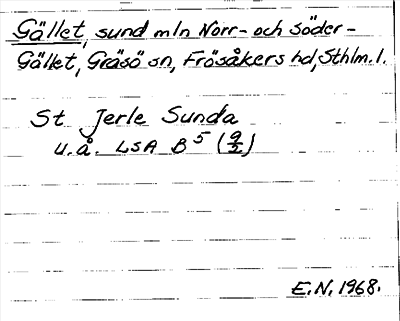 Gället, sund mln Norr- och Söder-
Gället, Gräsö sn, Frösåkers hd, Sthlm. l.
St Jerle Sunda
u.å. LSA B5 (9/2)
E.N. 1968.